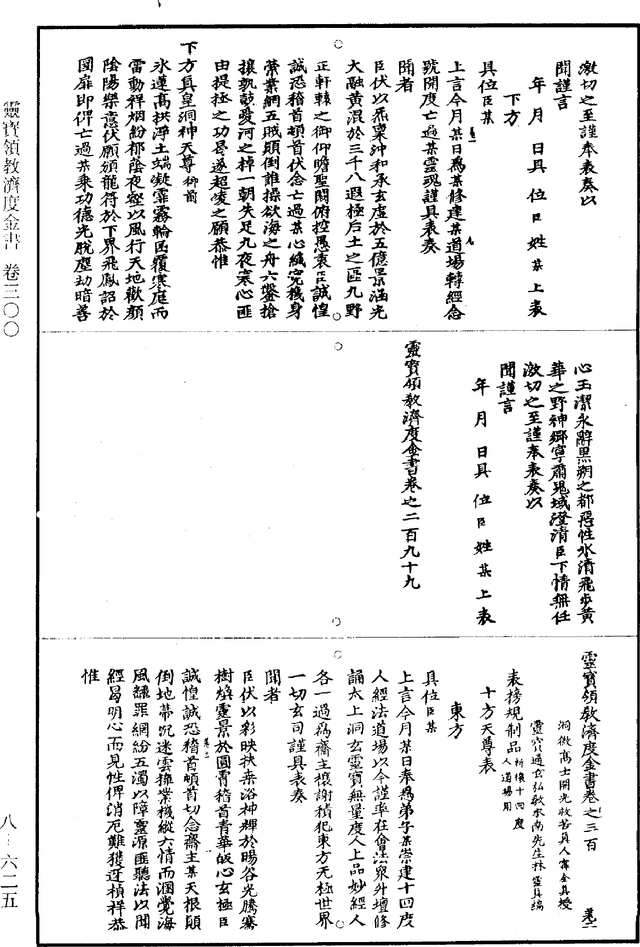 激切之至謹奉表奏以
聞謹言
年 月 日具 位 臣 姓 某 上表
下方
具位臣某
上言今月某日為某修建某道場轉經念
號開度亡過某靈魂謹具表奏
聞者
臣伏以炁稟沖和承玄虛於五億景涵光
大融黃混於三千八遐極后土之區九野
正軒轅之御仰瞻聖闕俯控愚衷臣誠惶
誠恐稽首頓首伏念亡過某心織究機身
縈業網五賊顛倒誰操慾海之舟六鑿搶
攘孰鼓愛河之棹一朝失足九夜寒心匪
由提拯之功曷遂超淩之願恭惟
下方真皇洞神天尊御前
永蓮高拱淨土端凝霏霧輪囷覆寒庭而
雷動祥烟紛郁蔭夜壑以風行天地歡顏
陰陽樂意伏願頒龍符於下界飛鳳詔於
圜扉即俾亡過某乘功德光脫塵劫暗善
心玉潔永辭黑朔之都惡性水清飛步黃
華之野神鄉寧肅鬼域澄清臣下情無任
激切之至謹奉表奏以
聞謹言
年 月 日具 位 臣 姓 某 上 表
靈寶領教濟度金書卷之二百九十九
靈寶領教濟度金書卷之三百
洞微高士開光救苦真人甯全真授
靈寶通玄弘教水南先生林靈真編
表榜規制品 祈禳十四度人道場用
十方天尊表
東方
具位臣某
上言今月某日奉為弟子某崇建十四度
人經法道場以今謹率在會法眾升壇修
誦太上洞玄靈寶無量度人上品妙經人
各一過為齋主禳謝積犯東方無極世界
一切玄司謹具表奏
聞者
臣伏以彩映扶桑浴神輝於暘谷光騰騫
樹煥靈景於圓霄稽首青華皈心玄極臣
誠惶誠恐稽首頓首切念齋主某天根顛
倒地蒂沉迷雲擾業機縱六情而溷覺海
風翻罪網紛五濁以障靈源匪聽法以聞
經曷明心而見性俾消厄難獲迓禎祥恭
惟
靈寶領教濟度金書 卷三〇〇
八-六二五